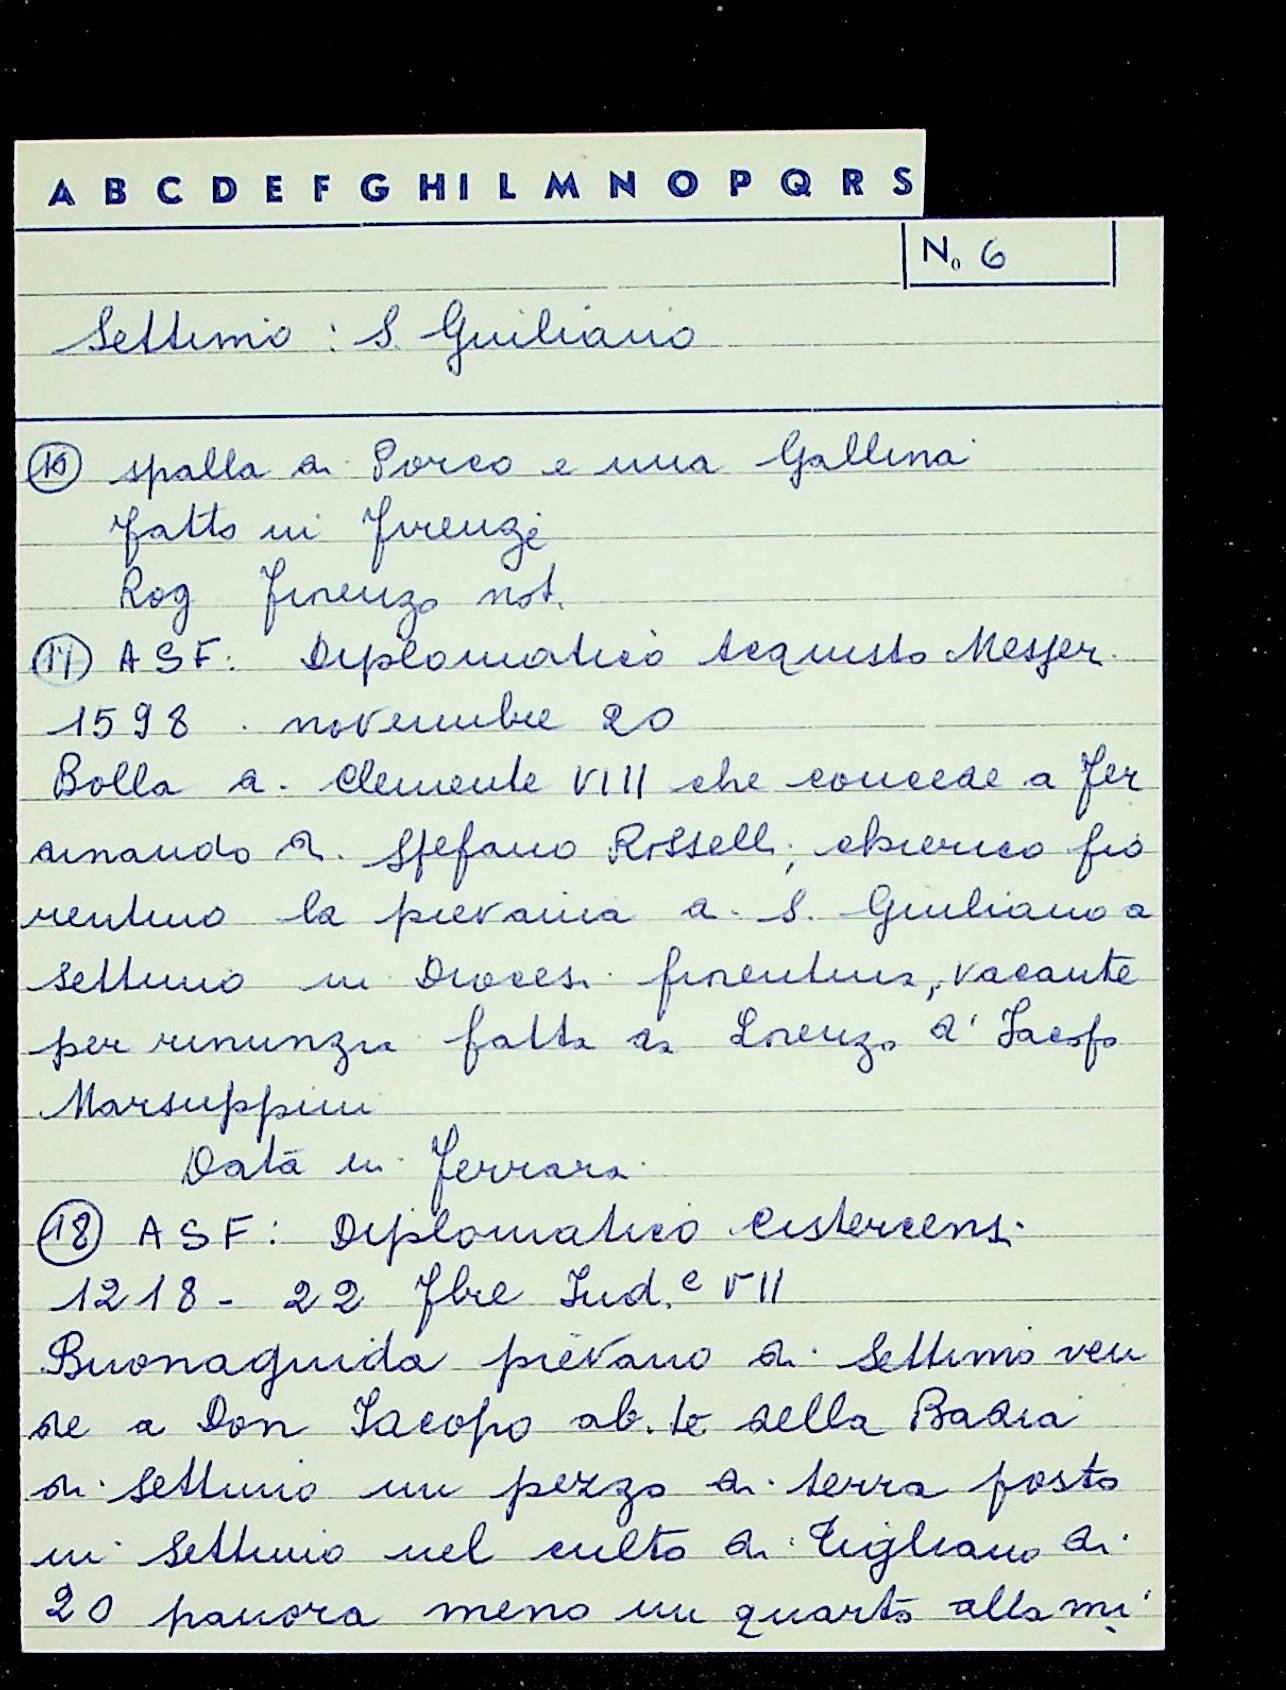 A B C D E F G H I L M N O P Q R S
No 6
Settimo : S. Giuliano
16 spalla di Porco e una Gallina
fatto in Firenze
Rog Firenzo not.
17 ASF: Diplomatico Acquisto Messer
1598 . novembre 20
Bolla di Clemente VIII che concede a Fer
dinando di Stefano Rosselli, chierico fio
rentino la pievania di S. Giuliano a
Settimo in Diocesi fiorentina, vacante
per rinunzia fatta da Lorenzo d' Iacopo
Marsuppini
Data in Ferrara
18 ASF: Diplomatico Cistercensi
1218 - 22 7bre Ind.e VII
Buonaguida pievano di Settimo ven
de a Don Iacopo ab.te della Badia
di Settimo un pezzo di terra posto
in Settimo nel culto di Tigliano di
20 panora meno un quarto alla mi